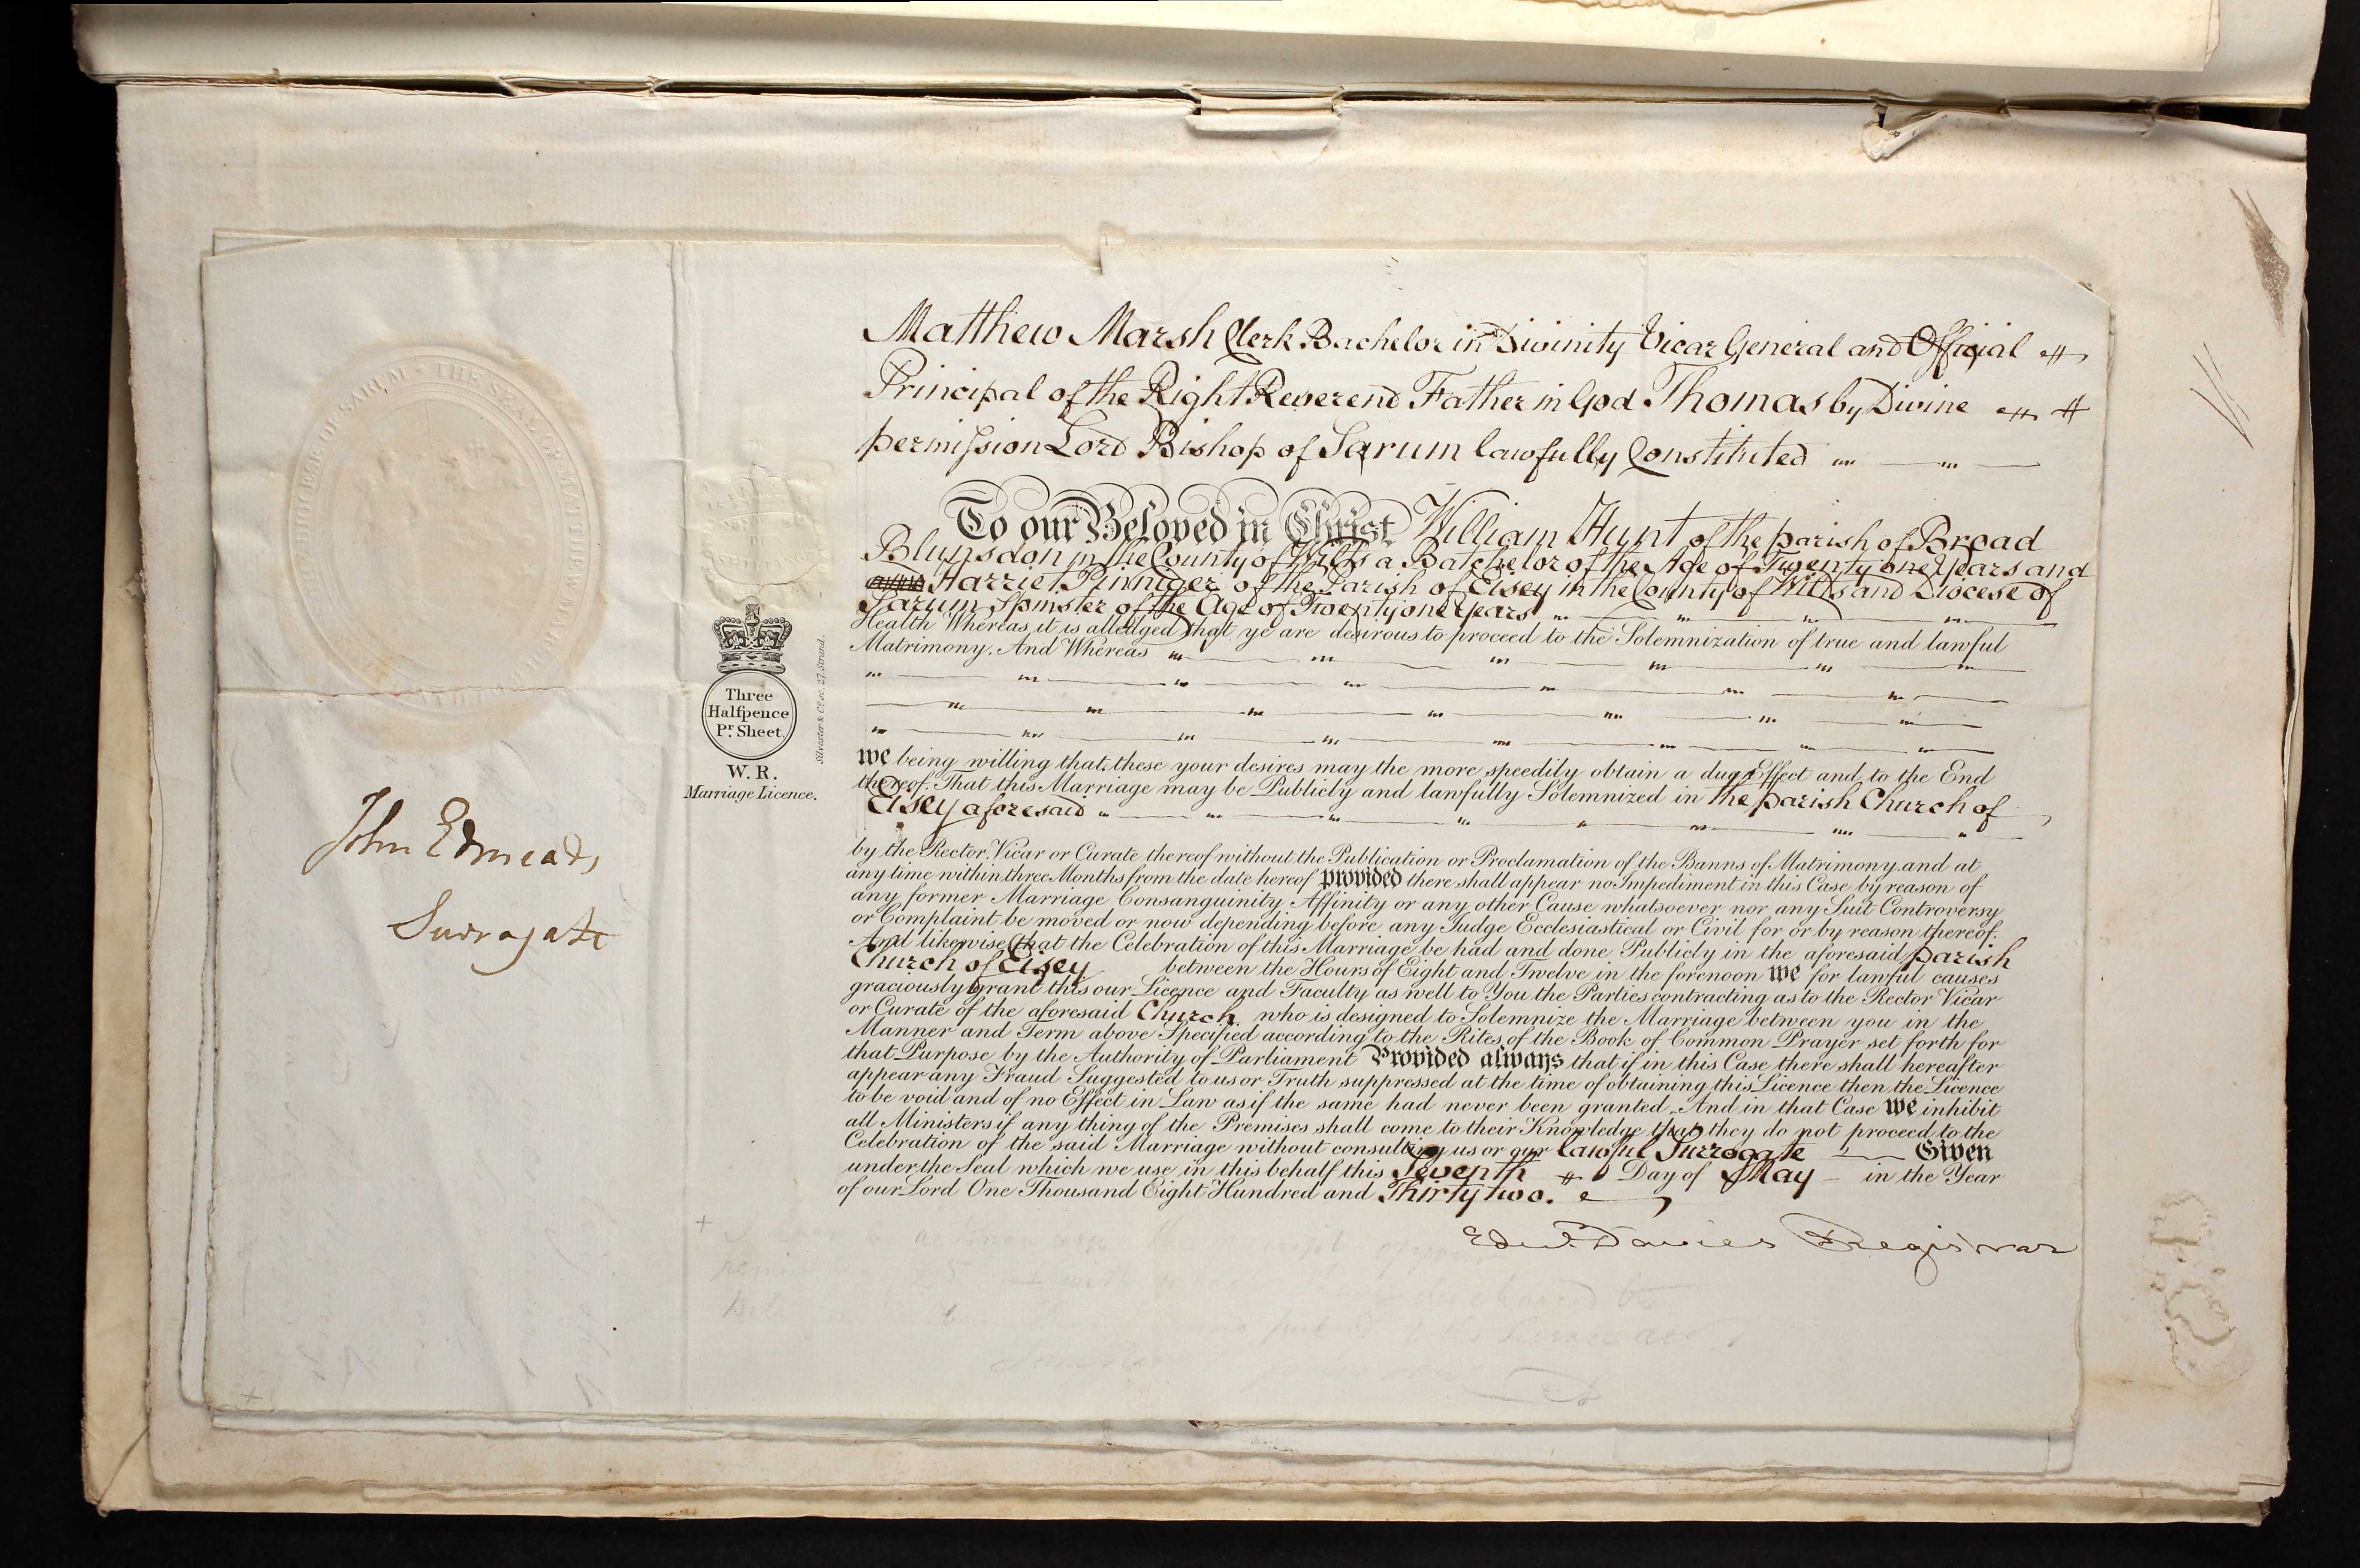 Matthew Marsh Clerk Bachelor in Divinity Vicar General and Official
Principal of the Right Reverend Father in God Thomas by Divine
permission Lord Bishop of Sarum lawfully Constituted
To our Beloved in Christ William Hunt of the parish of Broad
Blunsdon in the County of Wilts a Batchelor of the Age of Twenty one Years and
Harriet Pinniger of the Parish of Eisey in the County of Wilts and Diocese of
Sarum Spinster of the Age of Twenty one Years
Health Whereas it is alledged that ye are desirous to proceed to the Solemnization of true and lawful
Matrimony. And Whereas
we being willing that these your desires may the more speedily obtain a due Effect and to the End
thereof. That this Marriage may be Publicly and lawfully Solemnized in the parish Church of
Eisey aforesaid
by the Rector, Vicar or Curate thereof without the Publication or Proclamation of the Banns of Matrimony and at
any time within three Months from the date hereof provided there shall appear no Impediment in this Case by reason of
any former Marriage Consanguinity Affinity or any other Cause whatsoever nor any Suit Controversy
or Complaint be moved or now depending before any Judge Ecclesiastical or Civil for or by reason thereof.
And likewise that the Celebration of this Marriage be had and done Publicly in the aforesaid parish
Church of Eisey between the Hours of Eight and Twelve in the forenoon we for lawful causes
graciously grant this our Licence and Faculty as well to You the Parties contracting as to the Rector Vicar
or Curate of the aforesaid Church who is designed to Solemnize the Marriage between you in the
Manner and Term above Specified according to the Rites of the Book of Common Prayer set forth for
that Purpose by the Authority of Parliament Provided always that if in this Case there shall hereafter
appear any Fraud Suggested to us or Truth suppressed at the time of obtaining this Licence then the Licence
to be void and of no Effect in Law as if the same had never been granted. And in that Case we inhibit
all Ministers if any thing of the Premises shall come to their Knowledge that they do not proceed to the
Celebration of the said Marriage without consulting us or our lawful Surrogate Given
under the Seal which we use in this behalf this Seventh Day of May in the Year
of our Lord One Thousand Eight Hundred and Thirty two.
Edwd. Davies Registrar
THE SEAL OF MATTHEW MARSH
DIOCESE OF SARUM
Three
Halfpence
Pr. Sheet.
W. R.
Marriage Licence.
Silvester & Co. sc. 27, Strand.
John Edmeads
Surrogate